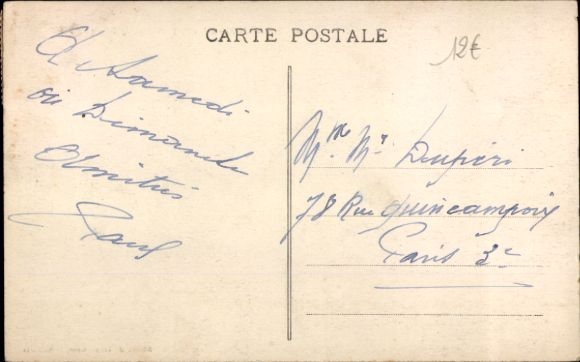 CARTE POSTALE
12€
A Samedi
ou Dimanche
Amitiés
Paul
Mme Mr Dupéri
78 Rue Quincampoix
Paris 3e